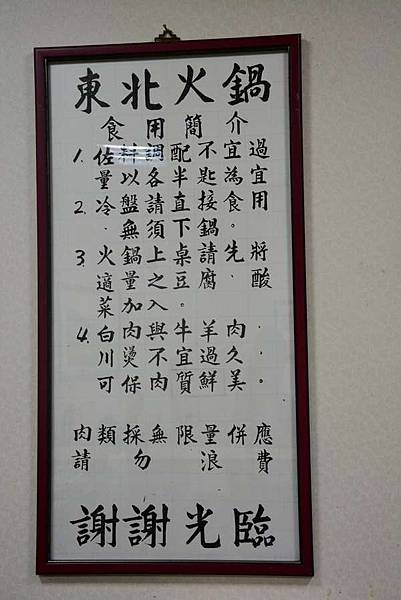 東北火鍋
食用簡介
1. 佐料調配不宜過
量以各半匙為宜。
2. 冷盤請直接食用
．無須下鍋。
3. 火鍋上桌請先將
適量之豆腐．酸
菜加入。
4. 白肉與牛羊肉．
川燙不宜過久．
可保肉質鮮美。
肉類採無限量供應
請勿浪費
謝謝光臨